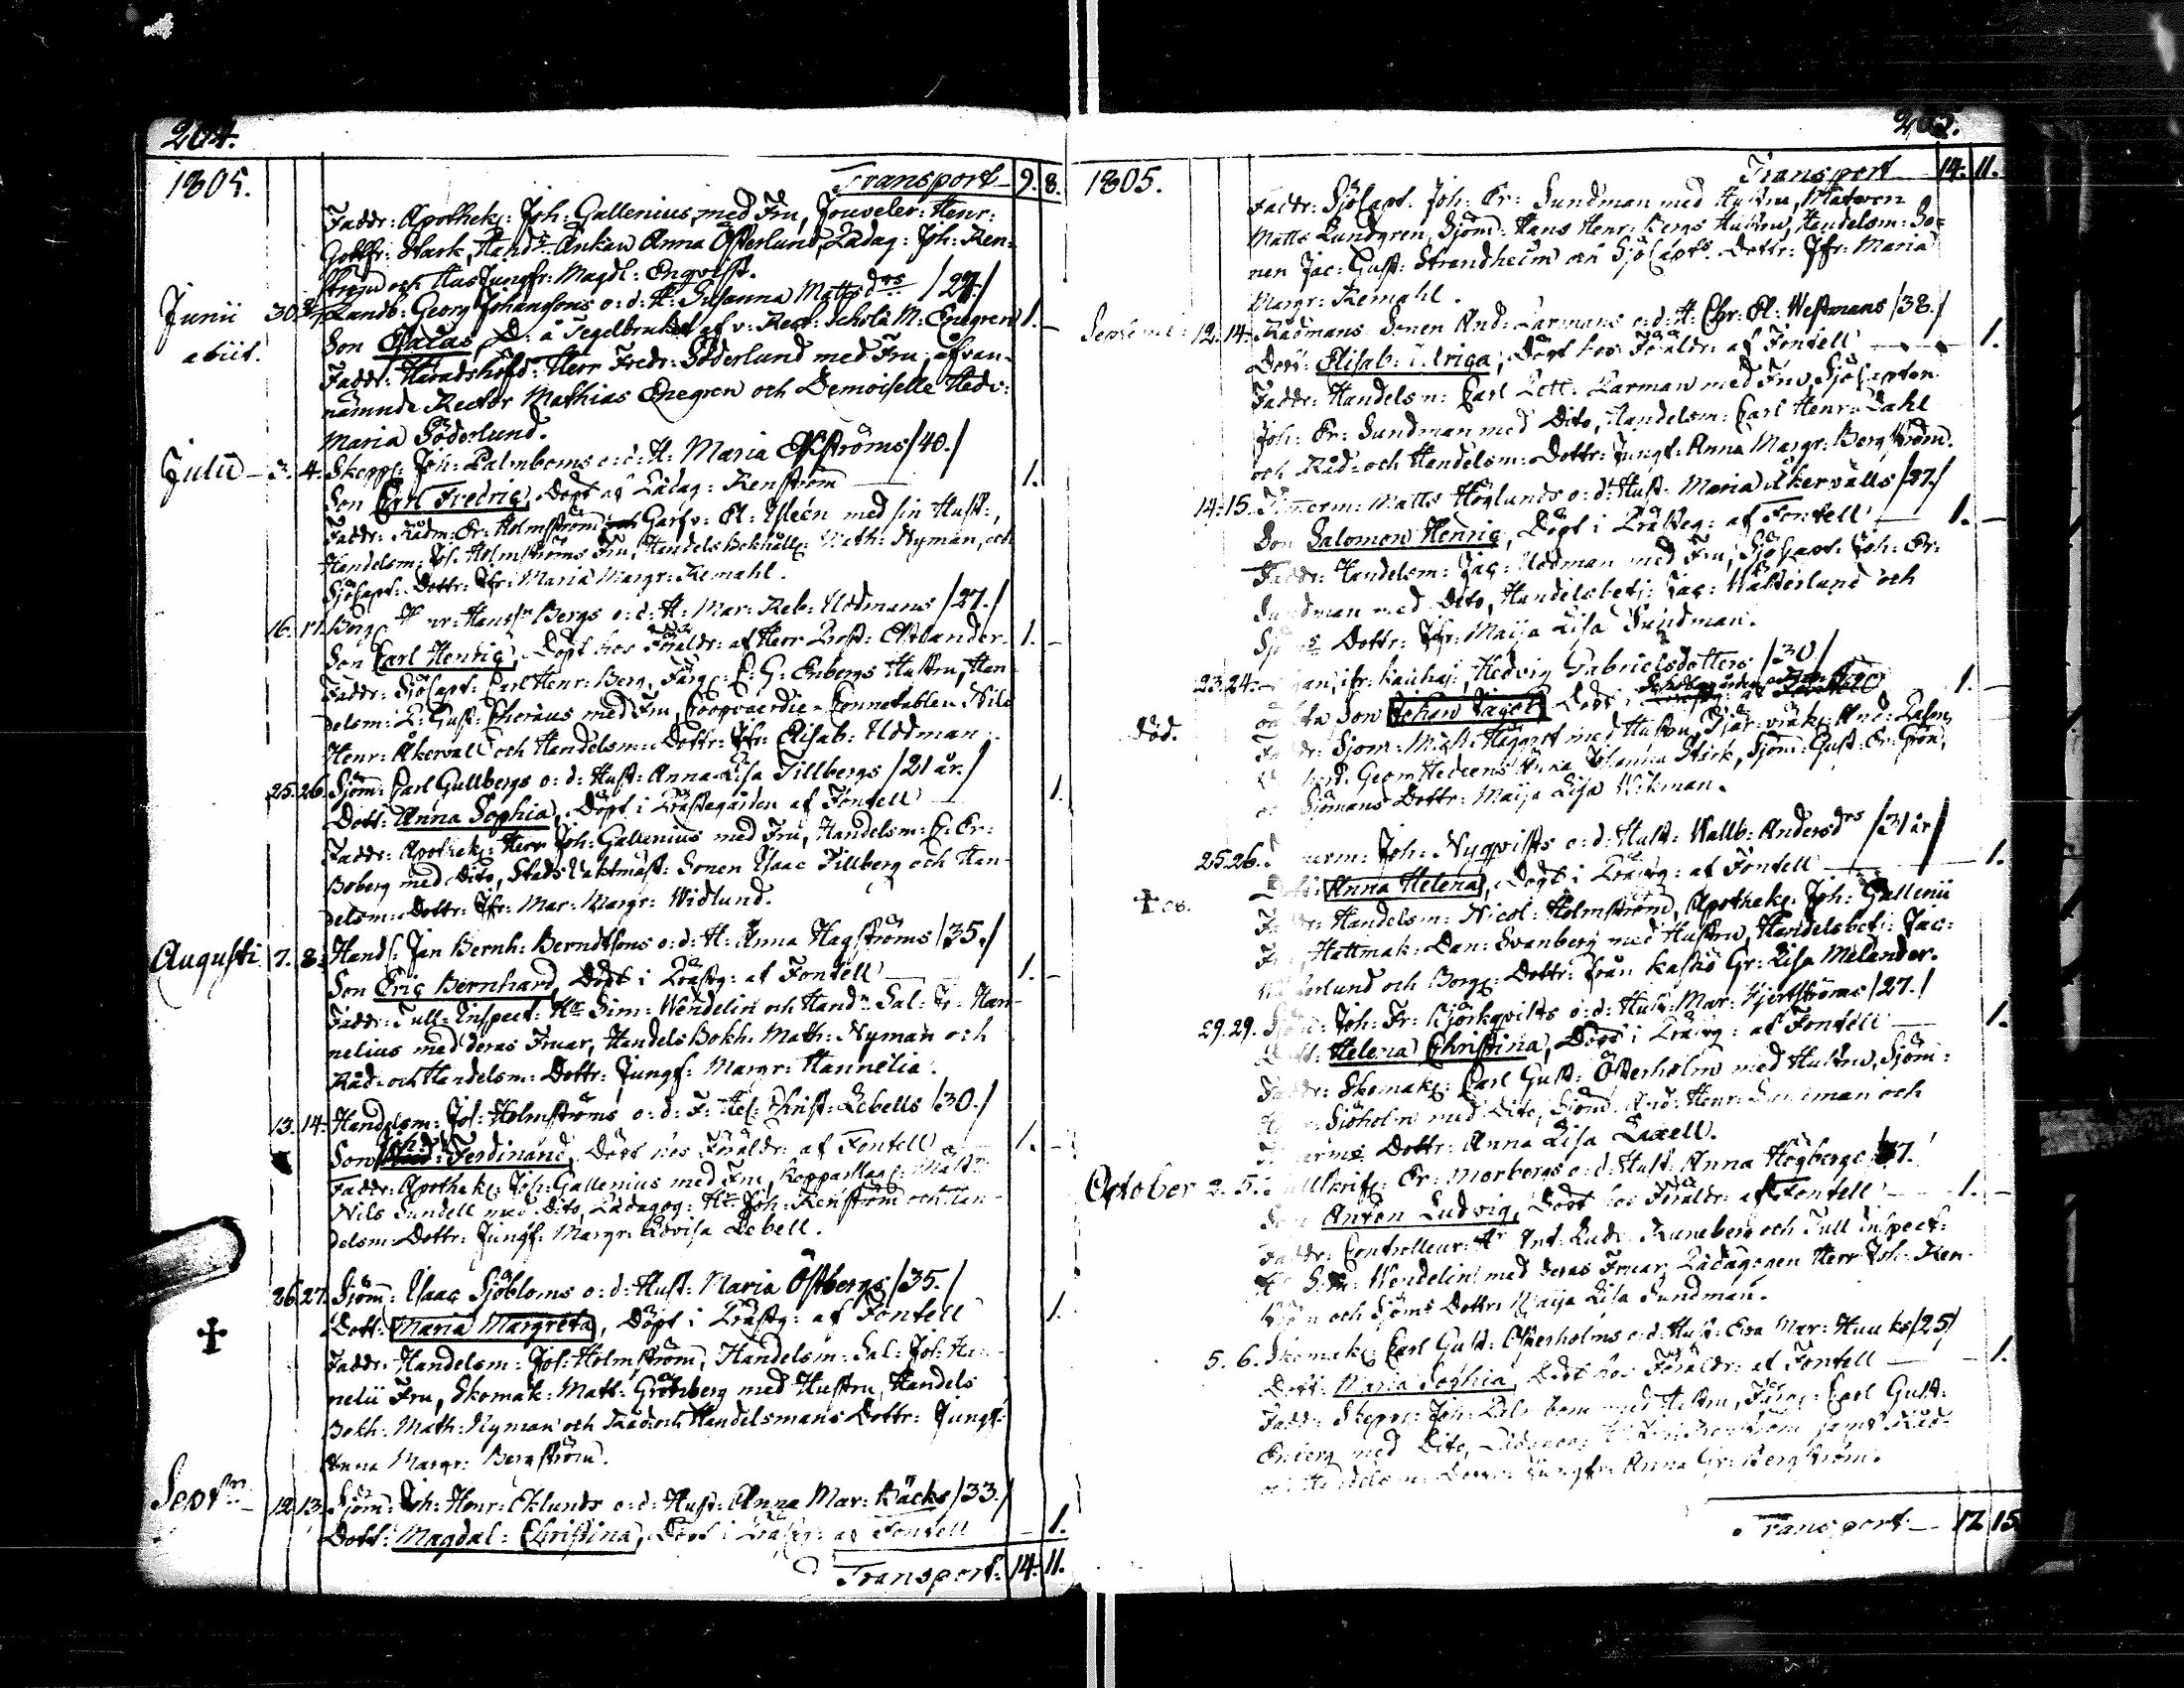 204.
1805. Transport 9. 8.
Faddr: Apothek: Joh: Gallenius med Fru, Jouveler: Henr:
Gottfr: Stark, Hand: Änkan Anna Österlund, Pädag: Joh: Ren-
ström och Hus Jungfr: Magdl: Engvist.
Junii 30. Landb: Georg Johansons o: d: H: Susanna Mattsdrs /27/
abiit. Son D: å Tegelbruket af v: Rect: Scholæ M: Enegren 1.
Faddr: Häradshöfd: Herr Fredr: Söderlund med Fru, ofvan-
nämnde Rector Mathias Enegren och Demoiselle Hedv:
Maria Söderlund.
Julii 3. 4. Skepp: Joh: Palmboms o: d: H: Maria Ekströms /40./
Son Carl Fredric, Döpt af Pädag: Renström 1.
Faddr: Rådm: Er: Holmström Garfv: Ol: Ysleén med sin Hust:,
Handelsm: Jos: Holmströms Fru, Handels Bokhåll: Math: Nyman, och
SjöCapt: Dottr: Jfr: Maria Margr: Remahl.
16. 17. Borg: Bergs o: d: H: Mar: Reb: Uddmans /27./
Son Carl Henric, Döpt hos Föräldr: af Herr Prost: Estlander 1.
Faddr: SjöCapt: Carl Henr: Berg, Färg: C: G: Enbergs Hustru, Han-
delsm: L: Gust: Choræus med Fru, Coopvaerdie-Connetablen Nils
Henr: Åkervall och Handelsm: Dottr: Jfr: Elisab: Uddman.
25. 26. Sjöm: Carl Gullbergs o: d: Hust: Anna Lisa Tillbergs /21 år./
Dott: Anna Sophia, Döpt i Prästegården af Fontell 1.
Faddr: Apothek: Herr Joh: Gallenius med Fru, Handelsm: C: Er:
Boberg med Dito, Stads Vaktmäst: Sonen Isaac Tillberg och Han-
delsm: Dottr: Jfr: Mar: Margr: Widlund.
Augusti 7. 8. Hands: Jan Bernh: Berndtsons o: d: H: Anna Hagströms /35./
Son Eric Bernhard, Döpt i Prästg: af Fontell 1.
Faddr: Tull-Inspect: Hr Sim: Wendelin och Handm Sal: Jr: Han-
nelius med deras Fruar, Handels Bokh: Math: Nyman och
Råd- och Handelsm: Dottr: Jungf: Margr: Hannelia.
13. 14. Handelsm: Jos: Holmströms o: d: F: Hel: Christ: Lebells /30./
Son Joh: Ferdinand, Döpt hos Föräldr: af Fontell 1.
Faddr: Apothek: Joh: Gallenius med Fru, Kopparslag: Mäst:
Nils Sundell med Dito, Pädagog: Hr Joh: Renström och Han-
delsm: Dottr: Jungf: Margr: Lovisa Lebell.
26. 27. Sjöm: Isaac Sjöbloms o: d: Hust: Maria Östbergs /35./
Dott: Maria Margreta, Döpt i Prästg: af Fontell 1.
Faddr: Handelsm: Jos: Holmström, Handelsm: Sal: Joh: Han-
nelii Fru, Skomak: Matt: Grönberg med Hustru, Handels
Bokh: Math: Nyman och Råd och Handelsmans Dottr: Jungf:
Anna Margr: Bergström.
Septm 12. 13. Sjöm: Joh: Henr: Eklunds o: d: Hust: Anna Mar: Bäcks /33./
Dott: Magdal: Christina, Döpt i Prästg: af Fontell 1.
Transport: 14. 11.
205.
1805. Transport 14. 11.
Faddr: SjöCapt: Joh: Er: Sundman med Hustru, Matroen
Matts Lundgren, Sjöm: Hans Henr: Bergs Hustru, Handelsm: So-
nen Jac: Gust: Strandhelm och SjöCapts Dottr: Jfr: Maria
Margr: Remahl.
12. 14. Rådmans Sonen And: Larmans o: d: H: Chr: El: Westmans /38./
Dott: Elisab: Ulrica, Döpt hos Föräldr: af Fontell 1.
Faddr: Handelsm: Carl Larman med Fru, SjöCapten
Joh: Er: Sundman med Dito, Handelsm: Carl Henr: Dahl
och Råd- och Handelsm: Dottr: Jungf: Anna Margr: Bergström.
14. 15. Matts Höglunds o: d: Hust: Maria Åkervalls /27./
Son Salomon Henric, Döpt i Prästeg: af Fontell 1.
Faddr: Handelsm: Jac: Uddman med Fru, SjöCapt: Joh: Er:
Sundman med Dito, Handelsbetj: Jac: Wälderlund och
Dottr: Jfr: Maija Lisa Sundman.
23. 24. Hedvig Gabrielsdotters /30/
Son Johan Jacob, Döpt i 1.
död. Sjöm: Häggert med Hustru, And:
Georg Hedeens Johanna Stark, Sjöm: Gust: Er: Grön,
Sjömans Dottr: Maija Lisa Wikman.
25. 26. Joh: Nyqvists o: d: Hust: Wallb: Andersdrs /31 år/
Anna Helena, Döpt i Prästg: af Fontell 1.
Handelsm: Nicol: Holmström, Apothek: Joh: Gallenii
Hattmak: Dan: Svanberg med Hustru, Handelsbetj: Jac:
och Borg: Dottr: från Kaskö Gr: Lisa Melander.
29. 29. Joh: Fr: Björkqvists o: d: Hust: Mar: Hjertströms /27./
Helena Christina, Döpt i Prästg: af Fontell 1.
Faddr: Skomak: Carl Gust: Österholm med Hustru, Sjöm:
Sjöholm med Dito, Sjöm: And: Henr: och
Dottr: Anna Lisa Lixell.
October 2. 5. Er: Morbergs o: d: Hust: Anna Högbergs
Son Anton Ludvig, Döpt hos Föräldr: af Fontell 1.
Faddr: Controlleur: Hr Ant: Ludv: Runeberg och Tull Inspect:
Hr Sim: Wendelin med deras Fruar, Pädagogen Herr Joh: Ren-
ström och Sjöms Dottr: Maija Lisa Sundman.
5. 6. Skomak: Carl Gust: Österholms o: d: Hust: Eva Mar: /25/
Dott: Maria Sophia, Döpt hos Föräldr: af Fontell 1.
Faddr: Skepp: Joh: Palmbom med Hustru, Färg: Carl Gust:
Enberg med Dito, Pädagog: Renström samt Råd-
och Handelsm: Dottr: Jungfr: Anna Gr: Bergström.
Transport 17 15